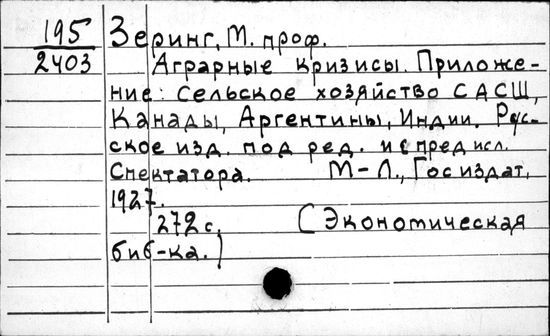 195 Зеринг, М. проф.
2403 Аграрные кризисы. Приложе-
ние: Сельское хозяйство САСШ,
Канады, Аргентины, Индии. Рус-
ское изд. под ред. и с предисл.
Спектатора. М-Л., Госиздат,
1927.
272 с. (Экономическая
биб-ка.)